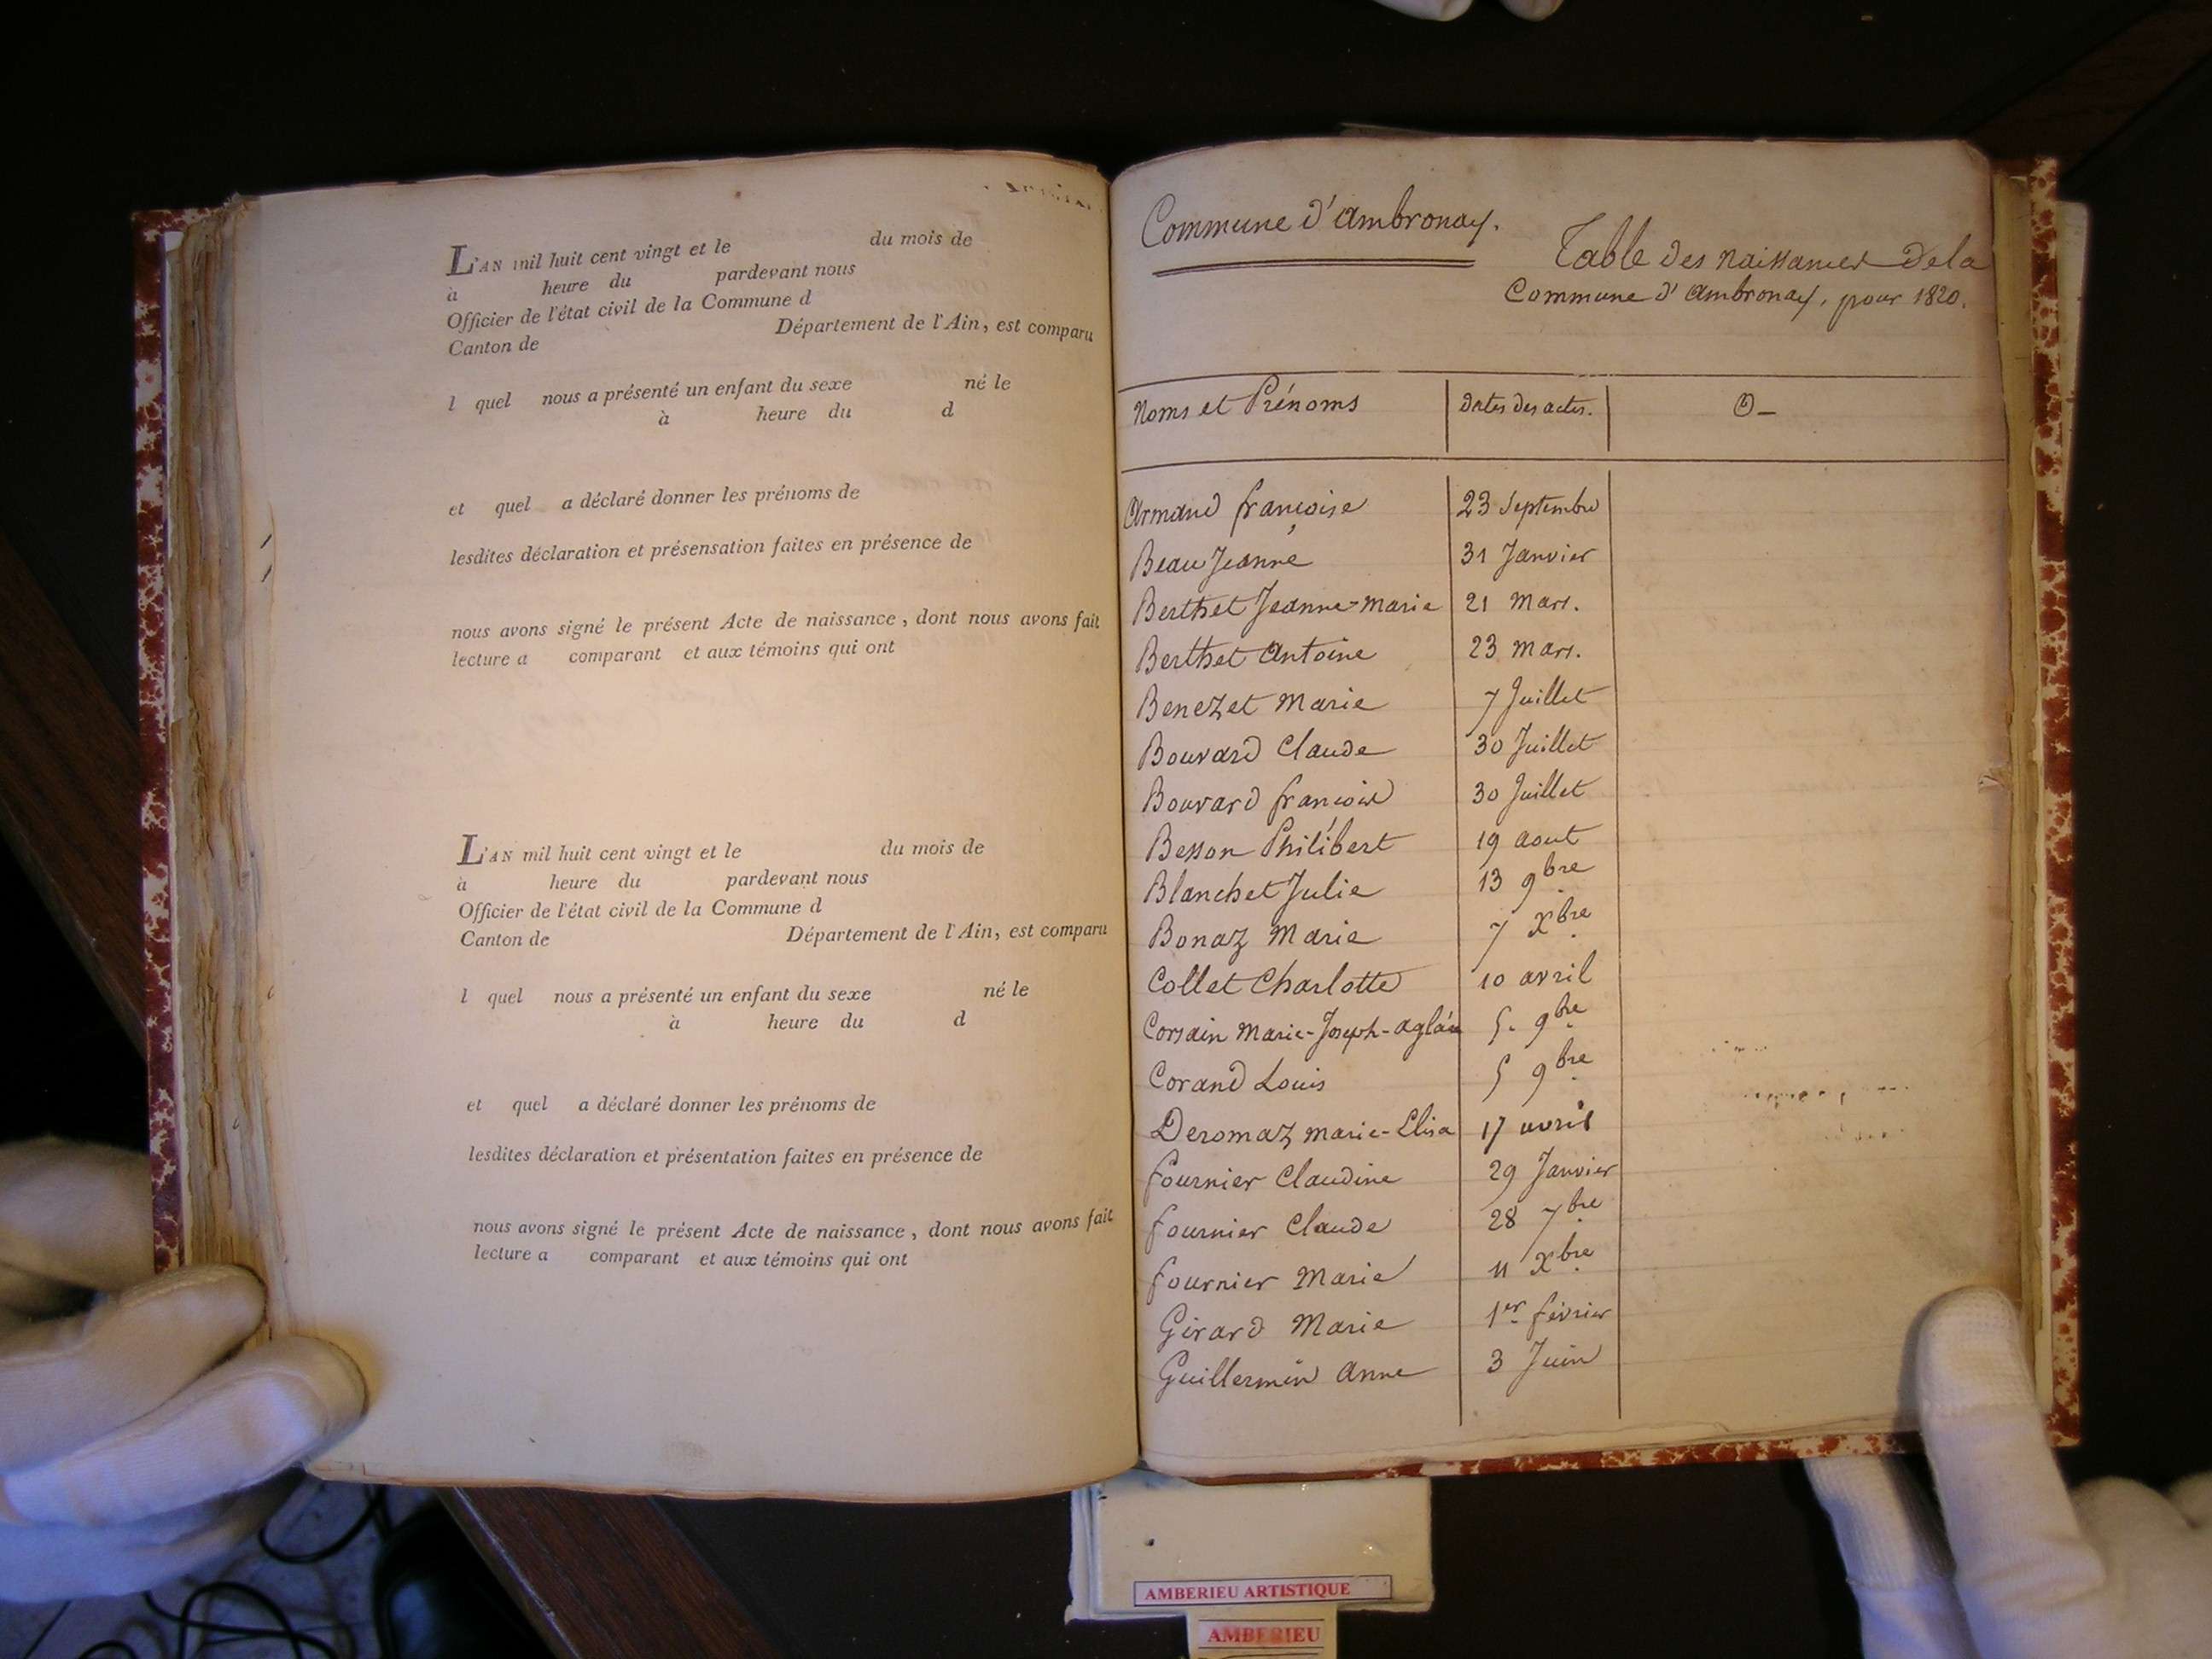 L'AN mil huit cent vingt et le du mois de
à heure du pardevant nous
Officier de l'état civil de la Commune d
Canton de Département de l'Ain, est comparu
l quel nous a présenté un enfant du sexe né le
à heure du d
et quel a déclaré donner les prénoms de
lesdites déclaration et présensation faites en présence de
nous avons signé le présent Acte de naissance, dont nous avons fait
lecture a comparant et aux témoins qui ont
L'AN mil huit cent vingt et le du mois de
à heure du pardevant nous
Officier de l'état civil de la Commune d
Canton de Département de l'Ain, est comparu
l quel nous a présenté un enfant du sexe né le
à heure du d
et quel a déclaré donner les prénoms de
lesdites déclaration et présentation faites en présence de
nous avons signé le présent Acte de naissance, dont nous avons fait
lecture a comparant et aux témoins qui ont
Commune d'Ambronay.
Table des naissances de la
Commune d'Ambronay, pour 1820.
Noms et Prénoms Dates des actes. O-
Armand françoise 23 Septembre
Beau Jeanne 31 Janvier
Berthet Jeanne-Marie 21 Mars.
Berthet Antoine 23 Mars.
Benezet Marie 7 Juillet
Bouvard Claude 30 Juillet
Bouvard françois 30 Juillet
Besson Philibert 19 aout
Blanchet Julie 13 9bre
Bonaz Marie 7 Xbre
Collet Charlotte 10 avril
Corsain Marie-Joseph-Aglaé 5. 9bre
Corand Louis 5 9bre
Deromaz Marie-Elisa 17 avril
fournier Claudine 29 Janvier
fournier Claude 28 7bre
fournier Marie 11 Xbre
Girard Marie 1er février
Guillermin Anne 3 Juin
AMBERIEU ARTISTIQUE
AMBERIEU